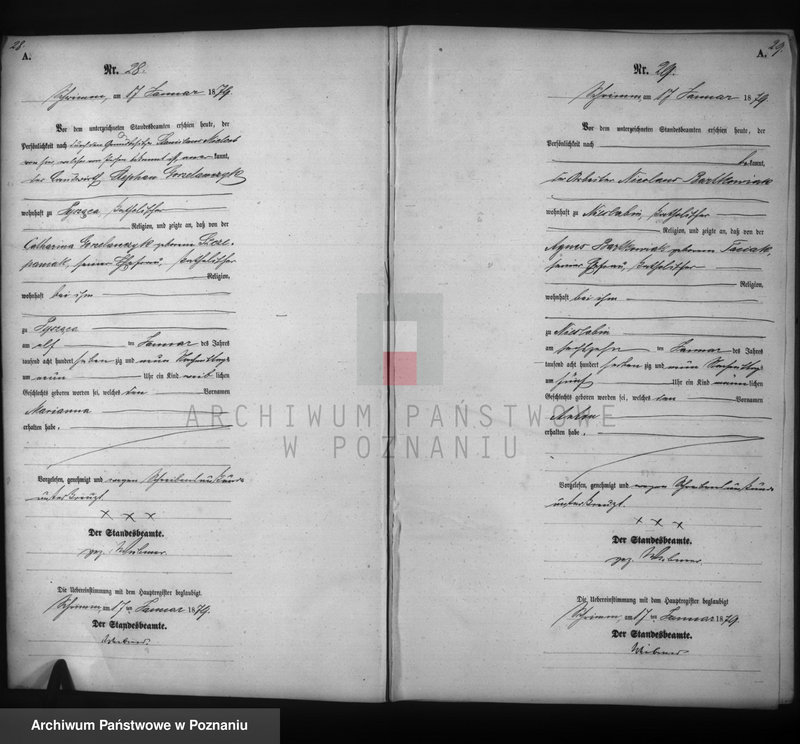 28
A.
Nr. 28.
Schrimm, am 17 Januar 1879
Vor dem unterzeichneten Standesbeamten erschien heute, der
Persönlichkeit nach durch den Grundbesitzer Stanislaus
kannt,
der Landwirth Stephan Gorzelanczyk
wohnhaft zu
katholischer
Religion, und zeigte an, daß von der
Catharina Gorzelanczyk geborene
seiner Ehefrau, katholischer
Religion,
wohnhaft bei ihm
zu
am elf ten Januar des Jahres
tausend acht hundert sieben zig und neun Nachmittags
um neun Uhr ein Kind weib lichen
Geschlechts geboren worden sei, welches den Vornamen
Marianna
erhalten habe.
Vorgelesen, genehmigt und wegen Schreibensunkunde
unterkreuzt.
× × ×
Der Standesbeamte.
gez.
Die Uebereinstimmung mit dem Hauptregister beglaubigt
Schrimm, am 17 ten Januar 1879
Der Standesbeamte.
29
A.
Nr. 29.
Schrimm, am 17 Januar 1879
Vor dem unterzeichneten Standesbeamten erschien heute, der
Persönlichkeit nach
be kannt,
der Arbeiter Nicolaus Bartkowiak
wohnhaft zu Nieslabin, katholischer
Religion, und zeigte an, daß von der
Agnes Bartkowiak geborene Taciak,
seiner Ehefrau, katholischer
Religion,
wohnhaft bei ihm
zu Nieslabin
am sechzehn ten Januar des Jahres
tausend acht hundert sieben zig und neun Nachmittags
um fünf Uhr ein Kind männ lichen
Geschlechts geboren worden sei, welches den Vornamen
Anton
erhalten habe.
Vorgelesen, genehmigt und wegen Schreibensunkunde
unterkreuzt.
× × ×
Der Standesbeamte.
gez.
Die Uebereinstimmung mit dem Hauptregister beglaubigt
Schrimm, am 17 ten Januar 1879
Der Standesbeamte.
ARCHIWUM PAŃSTWOWE
W POZNANIU
Archiwum Państwowe w Poznaniu